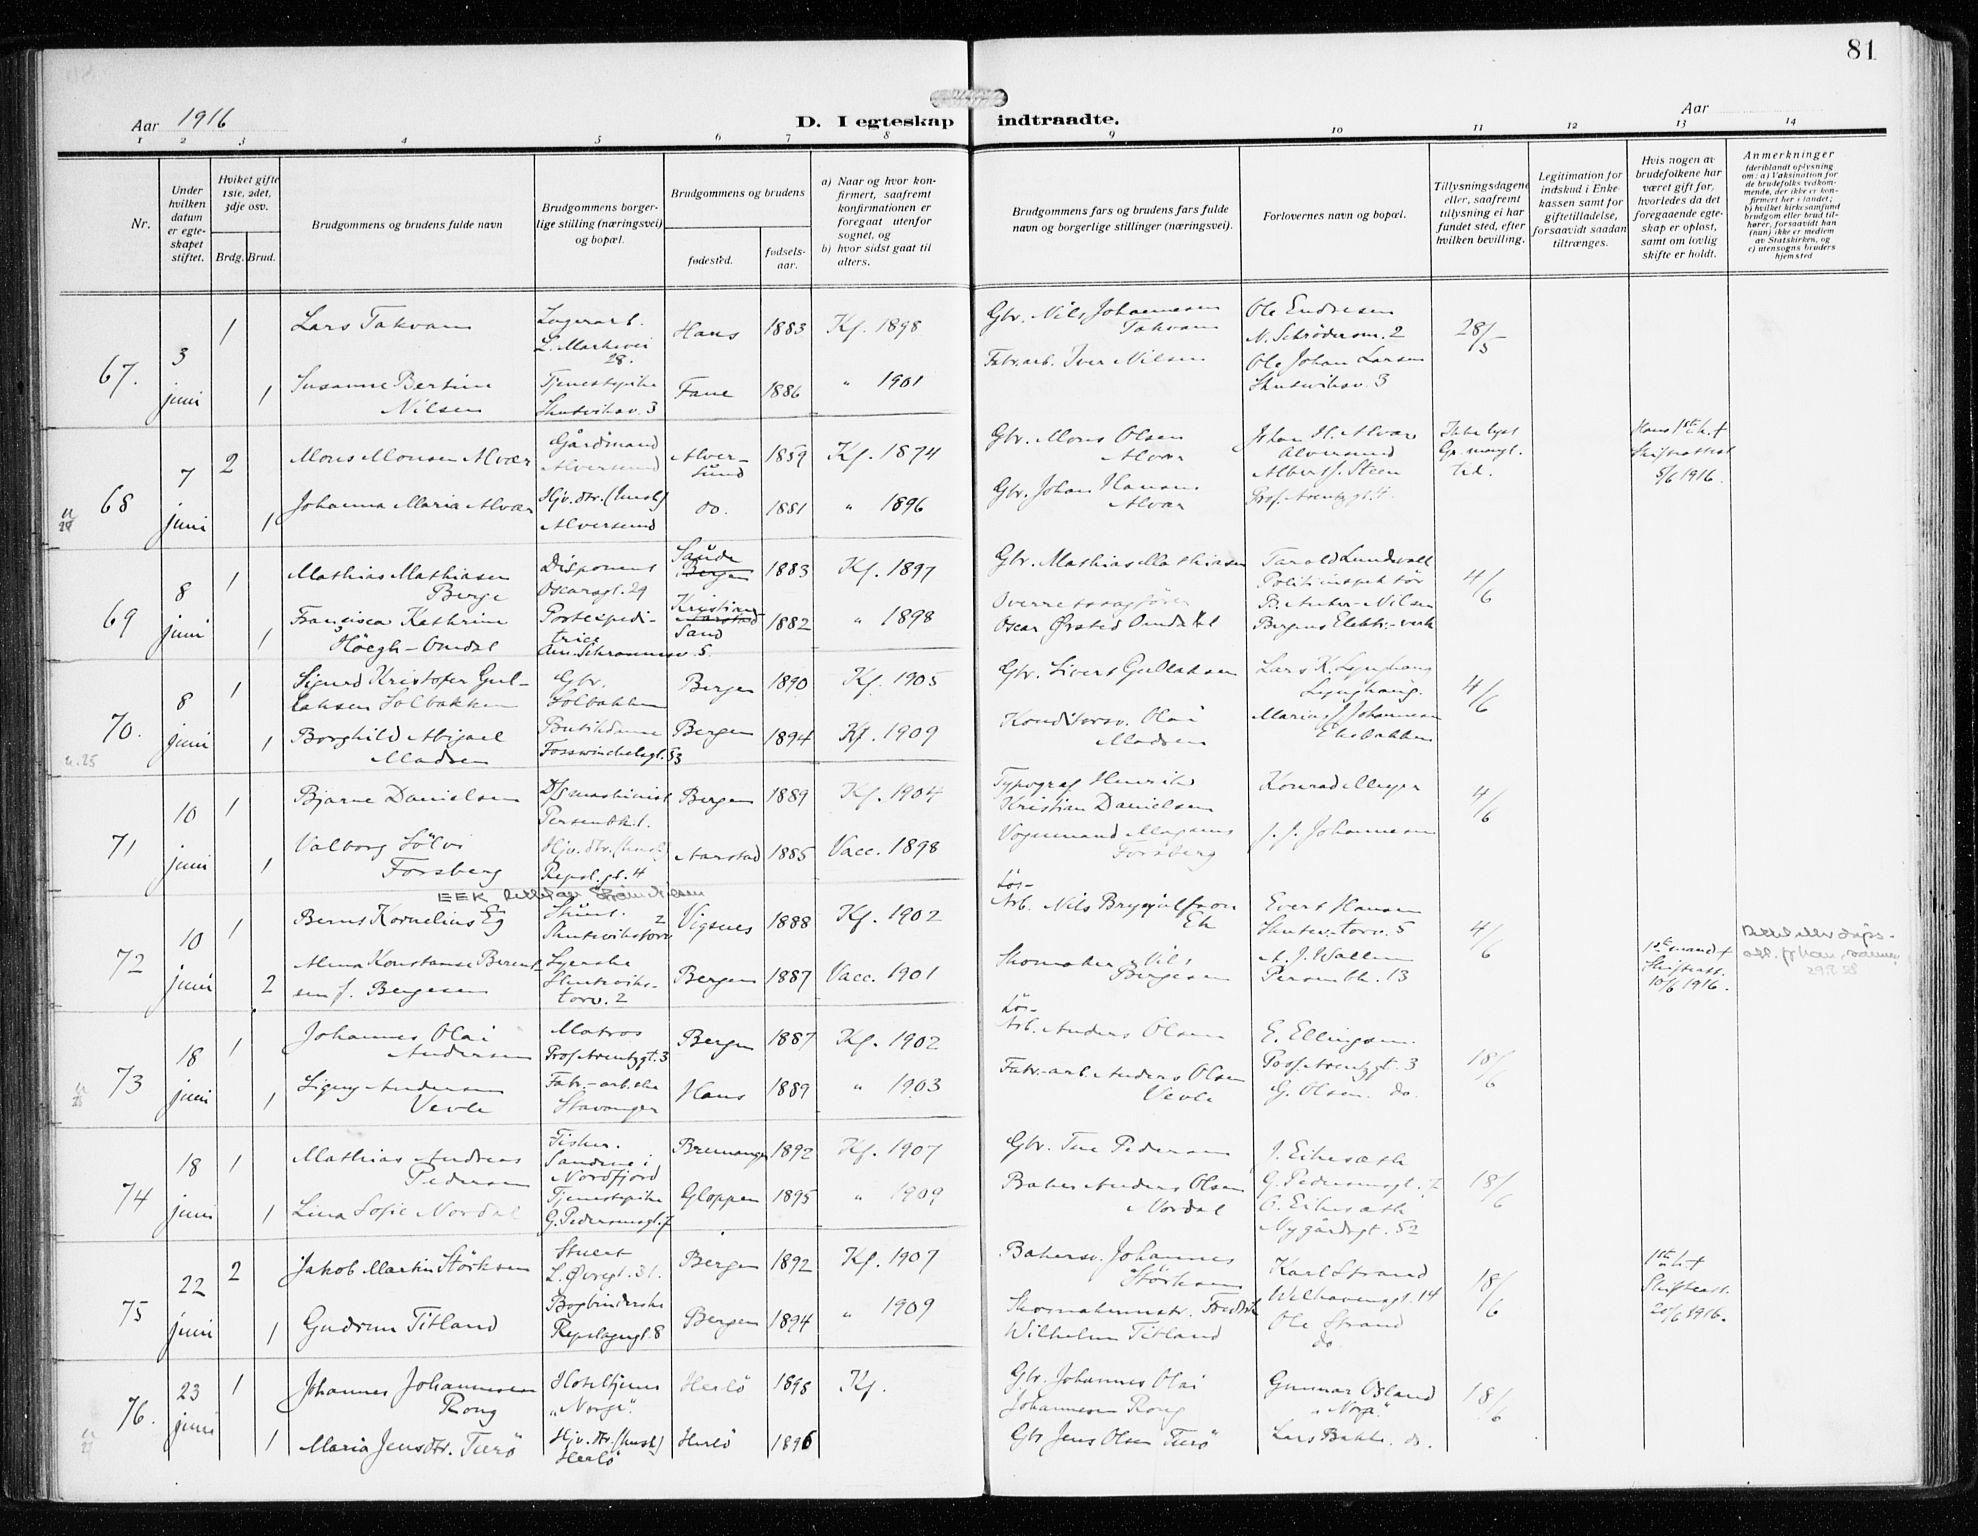 81
Aar 1916
D. I egteskap indtraadte.
Aar
1 2 3 4 5 6 7 8 9 10 11 12 13 14
Nr.
Under hvilken datum er egteskapet stiftet.
Hviket gifte 1ste, 2det, 3dje osv.
Brdg. Brud.
Brudgommens og brudens fulde navn
Brudgommens borgerlige stilling (næringsvei) og bopæl.
Brudgommens og brudens
fødested.
fødselsaar.
a) Naar og hvor konfirmert, saafremt konfirmationen er foregaat utenfor sognet, og
b) hvor sidst gaat til alters.
Brudgommens fars og brudens fars fulde navn og borgerlige stillinger (næringsvei).
Forlovernes navn og bopæl.
Tillysningsdagene eller, saafremt tillysning ei har fundet sted, efter hvilken bevilling.
Legitimation for indskud i Enkekassen samt for giftetilladelse, forsaavidt saadan tiltrænges.
Hvis nogen av brudefolkene har været gift før, hvorledes da det foregaaende egteskap er opløst, samt om lovlig skifte er holdt.
Anmerkninger
(deriblandt oplysning om: a) Vaksination for de brudefolks vedkommende, der ikke er konfirmert her i landet; b) hvilket kirkesamfund brudgom eller brud tilhører, forsaavidt han (hun) ikke er medlem av Statskirken, og c) utensogns bruders hjemsted
67. 3 juni
1 Lars Takvam
Lagerarb. L. Markevei 28.
Hans 1883 Kf. 1898
Gbr. Nils Johannesen Takvam
Ole Endresen
28/5
1 Susanne Bertine Nilsen
Tjenestepike Skuteviksv. 3
Fane 1886 " 1901
Fabr.arb. Iver Nilsen
Ole Johan Larsen Skuteviksv. 3
68 7 juni
2 Mons Monsen Alvær
Gårdmand Alversund
Alversund 1859 Kf. 1874
Gbr. Mons Olsen Alvær
Alversund
Ikke lyst
tid.
5/6 1916.
1 Johanna Maria Alvær
Hjv. dtr. (hush) Alversund
do. 1881 " 1896
Gbr. Johan Hansen Alvær
Albert J. Steen
69 8 juni
1 Mathias Mathiasen Berge
Disponent Oscarsgt. 29
Bergen 1883 Kf. 1897
Gbr. Mathias Mathiasen
Tarald Lundvall Politiinspektør
4/6
1 Francisca Kathrine Höegh-Omdal
Postexpeditrice
Kristiansand 1882 " 1898
Overretssagfører Oscar Ørsted Omdal
Bergens Elektr.-verk
70. 8 juni
1 Sigurd Kristofer Gullaksen Solbakken
Gbr. Solbakken
Bergen 1890 Kf. 1905
Gbr. Sivert Gullaksen
Lars K. Lynghaug Lynghaug.
4/6
1 Borghild Abigael Madsen
Butikdame Fosswinckelsgt. 53
Bergen 1894 Kf. 1909
Konditorsv. Olai Madsen
71 10 juni
1 Bjarne Danielsen
D/S maskinist Persenbk. 1.
Bergen 1889 Kf. 1904
Typograf Henrik Kristian Danielsen
Konrad Meyer
4/6
1 Valborg Sölvi Forsberg
Hjv. dtr. (hush) Repsl.gt. 4
Aarstad 1885 Vacc. 1898
Vognmand Magnus Forsberg
J. J. Johannesen
EEK
72 10 juni
1 Berns Kornelius Eg
Skutevikstorv 2
Vigsnes 1888 Kf. 1902
Løs-Arb. Nils Brynjulfson Ek
Evert Hansen Skutev. torv. 5
4/6
2 Alma Konstanse Berentsen f. Bergesen
Syerske Skutevikstorv. 2
Bergen 1887 Vacc. 1901
Skomaker Nils Bergesen
A. J. Wallem Persenbk. 13
1ste mand + Skifteatt. 10/6 1916.
73 18 juni
1 Johannes Olai Andersen
Matros Prof. Arentzgt. 3
Bergen 1887 Kf. 1902
Løs-Arb. Anders Olsen
E. Ellingsen. Prof. Arentzgt. 3
18/6
1 Signy Andersen Vevle
Fabr.-arb.ske Stavanger
Hans 1889 " 1903
Fabr.-arb. Anders Olsen Vevle
G. Olsen. do.
74 18 juni
1 Mathias Andreas Pedersen
Fisker. Sandene i Nordfjord
Bremanger 1892 Kf. 1907
Gbr. Tue Pedersen
J. Eikesæth G. Pedersensgt. 7
18/6
1 Lina Sofie Nordal
Tjenestepike G. Pedersensgt. 7
Gloppen 1895 " 1909
Baker Anders Olsen Nordal
O. Eikesæth Nygårdsgt. 52
75 22 juni
2 Jakob Martin Störksen
Stuert L. Øvregt. 31.
Bergen 1892 Kf. 1907
Bakersv. Johannes Störksen
Karl Strand Welhavensgt. 14
18/6
Skifteatt. 20/6 1916.
1 Gudrun Titland
Bogbinderske Repslagergt. 8
Bergen 1894 " 1909
Skomakermstr. Fredrik Wilhelm Titland
Ole Strand do
76. 23 juni
1 Johannes Johannesen Rong
Hoteltjener "Norge".
Herlö 1898 Kf.
Gbr. Johannes Olai Johannesen Rong
Gunnar Osland "Norge"
18/6
1 Maria Jensdtr. Turö
Hjv. dtr. (hush) Herlö
Herlö 1896
Gbr Jens Olsen Turö
Lars Bakke. do.